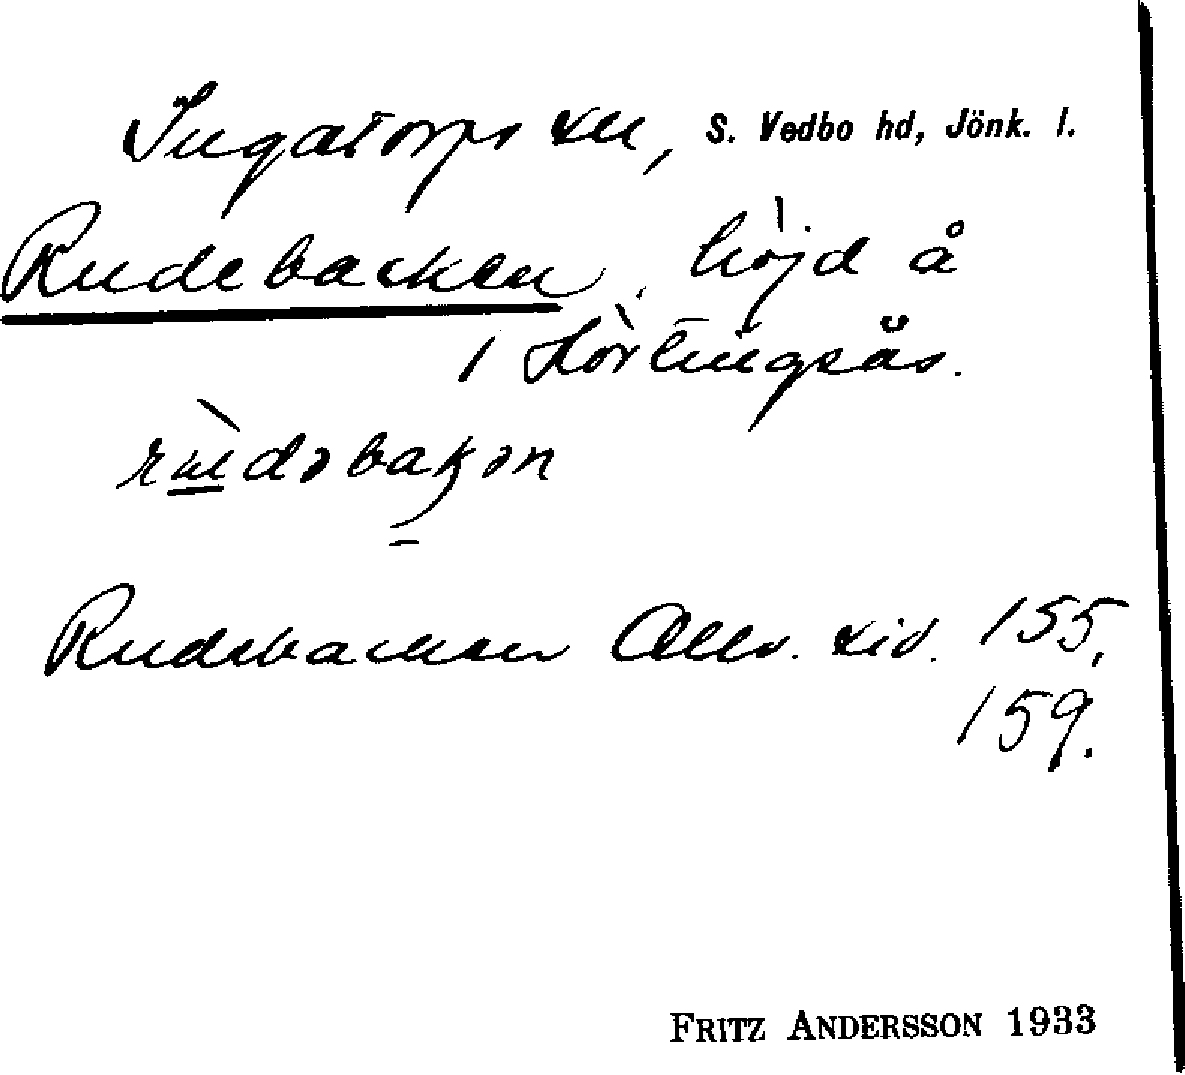 Ingatorps sn, S. Vedbo hd, Jönk. l.
Rudebacken, höjd å
1 Hörtingsås.
Rudebacken Allv. sid. 155,
159.
FRITZ ANDERSSON 1933